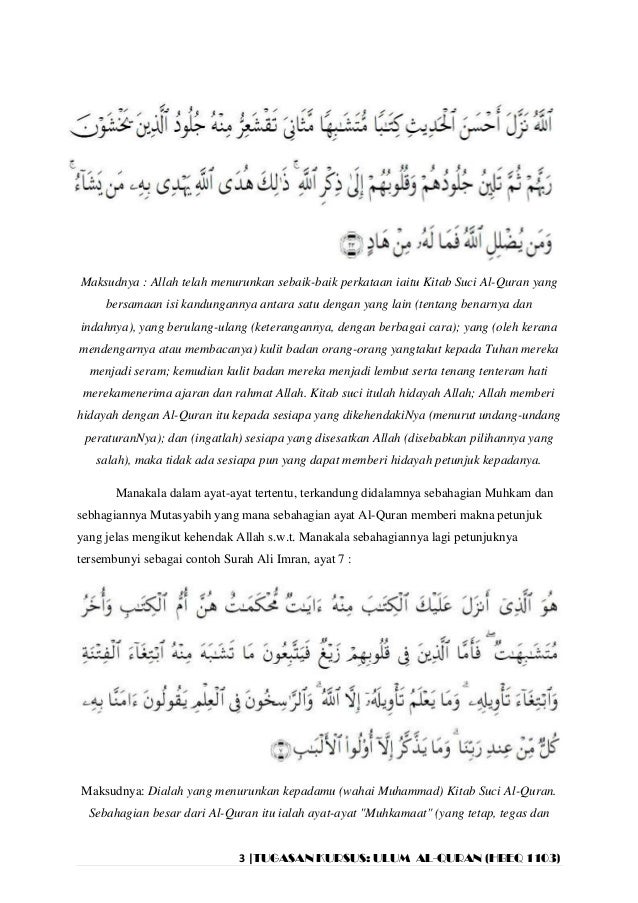 ٱللَّهُ نَزَّلَ أَحْسَنَ ٱلْحَدِيثِ كِتَـٰبًا مُّتَشَـٰبِهًا مَّثَانِىَ تَقْشَعِرُّ مِنْهُ جُلُودُ ٱلَّذِينَ يَخْشَوْنَ
رَبَّهُمْ ثُمَّ تَلِينُ جُلُودُهُمْ وَقُلُوبُهُمْ إِلَىٰ ذِكْرِ ٱللَّهِ ۚ ذَٰلِكَ هُدَى ٱللَّهِ يَهْدِى بِهِۦ مَن يَشَآءُ ۚ
وَمَن يُضْلِلِ ٱللَّهُ فَمَا لَهُۥ مِنْ هَادٍ ٢٣
Maksudnya : Allah telah menurunkan sebaik-baik perkataan iaitu Kitab Suci Al-Quran yang
bersamaan isi kandungannya antara satu dengan yang lain (tentang benarnya dan
indahnya), yang berulang-ulang (keterangannya, dengan berbagai cara); yang (oleh kerana
mendengarnya atau membacanya) kulit badan orang-orang yangtakut kepada Tuhan mereka
menjadi seram; kemudian kulit badan mereka menjadi lembut serta tenang tenteram hati
merekamenerima ajaran dan rahmat Allah. Kitab suci itulah hidayah Allah; Allah memberi
hidayah dengan Al-Quran itu kepada sesiapa yang dikehendakiNya (menurut undang-undang
peraturanNya); dan (ingatlah) sesiapa yang disesatkan Allah (disebabkan pilihannya yang
salah), maka tidak ada sesiapa pun yang dapat memberi hidayah petunjuk kepadanya.
Manakala dalam ayat-ayat tertentu, terkandung didalamnya sebahagian Muhkam dan
sebhagiannya Mutasyabih yang mana sebahagian ayat Al-Quran memberi makna petunjuk
yang jelas mengikut kehendak Allah s.w.t. Manakala sebahagiannya lagi petunjuknya
tersembunyi sebagai contoh Surah Ali Imran, ayat 7 :
هُوَ ٱلَّذِىٓ أَنزَلَ عَلَيْكَ ٱلْكِتَـٰبَ مِنْهُ ءَايَـٰتٌ مُّحْكَمَـٰتٌ هُنَّ أُمُّ ٱلْكِتَـٰبِ وَأُخَرُ
مُتَشَـٰبِهَـٰتٌ ۖ فَأَمَّا ٱلَّذِينَ فِى قُلُوبِهِمْ زَيْغٌ فَيَتَّبِعُونَ مَا تَشَـٰبَهَ مِنْهُ ٱبْتِغَآءَ ٱلْفِتْنَةِ
وَٱبْتِغَآءَ تَأْوِيلِهِۦ ۗ وَمَا يَعْلَمُ تَأْوِيلَهُۥٓ إِلَّا ٱللَّهُ ۗ وَٱلرَّٰسِخُونَ فِى ٱلْعِلْمِ يَقُولُونَ ءَامَنَّا بِهِۦ
كُلٌّ مِّنْ عِندِ رَبِّنَا ۗ وَمَا يَذَّكَّرُ إِلَّآ أُو۟لُوا۟ ٱلْأَلْبَـٰبِ ٧
Maksudnya: Dialah yang menurunkan kepadamu (wahai Muhammad) Kitab Suci Al-Quran.
Sebahagian besar dari Al-Quran itu ialah ayat-ayat "Muhkamaat" (yang tetap, tegas dan
3 |TUGASAN KURSUS: ULUM AL-QURAN (HBEQ 1103)